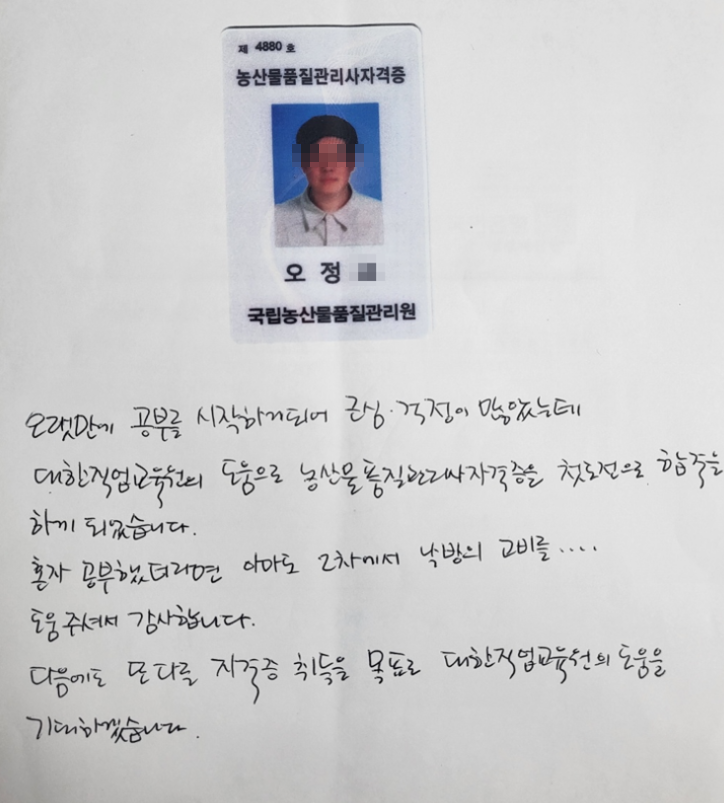 제 4880 호
농산물품질관리사자격증
오 정
국립농산물품질관리원
오랫만에 공부를 시작하게되어 근심·걱정이 많았는데
대한직업교육원의 도움으로 농산물품질관리사자격증을 첫도전으로 합격을
하게 되었습니다.
혼자 공부했더라면 아마도 2차에서 낙방의 고비를....
도움주셔서 감사합니다.
다음에도 또다를 자격증 취득을 목표로 대한직업교육원의 도움을
기대하겠습니다.